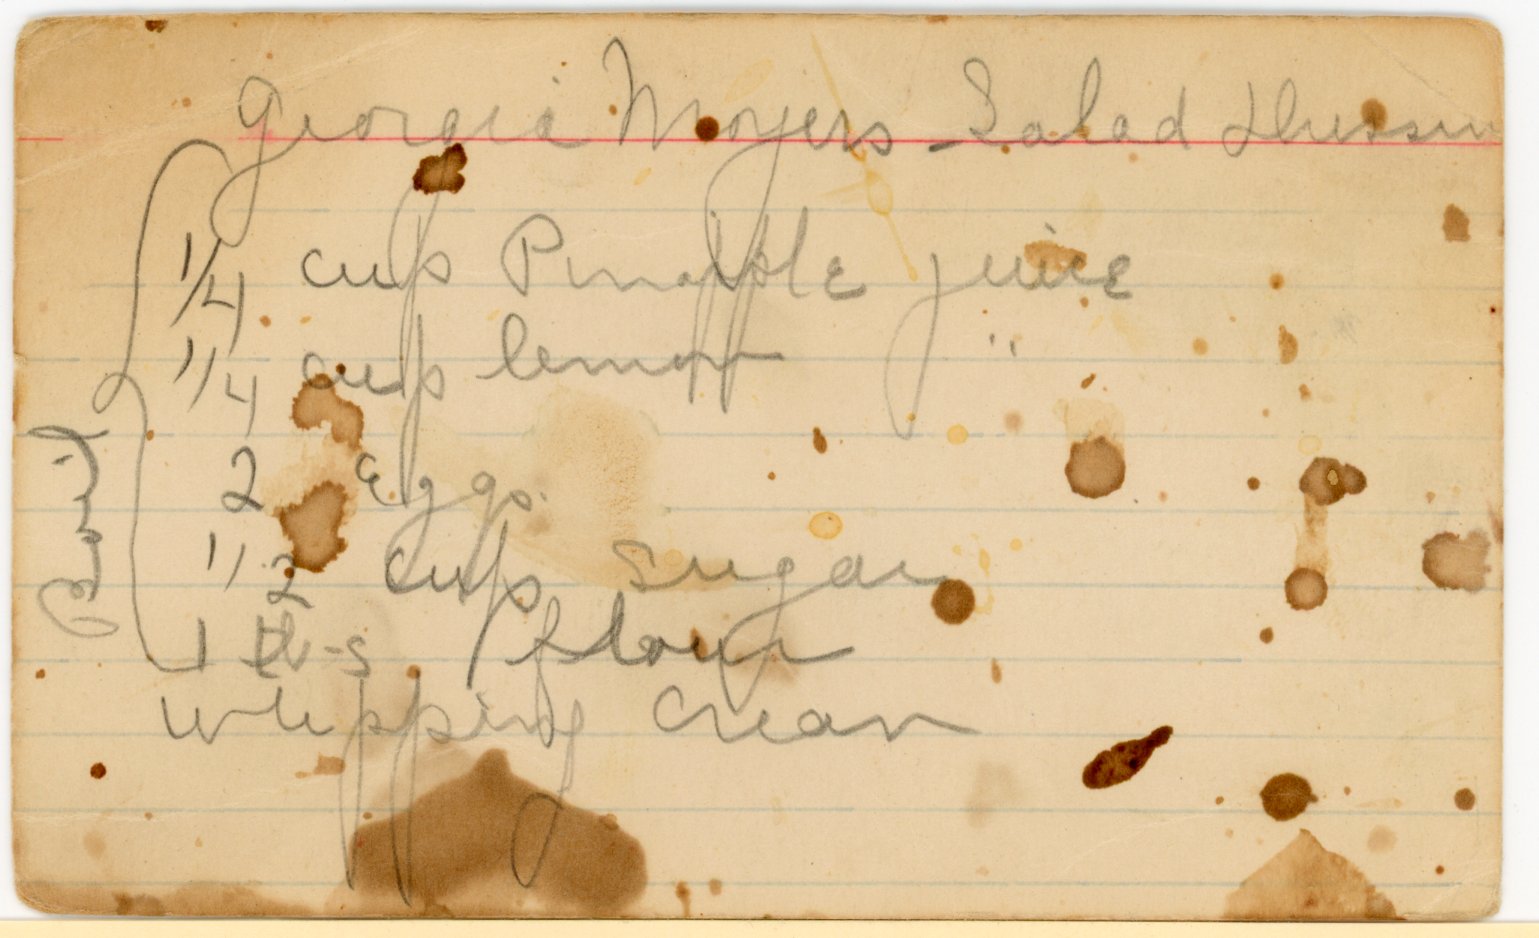 Georgia Moyers - Salad Dressin
1/4 cup Pinapple juice
1/4 cup lemon "
2 eggs.
1/2 cup sugar
1 tb-s flour
whipping cream